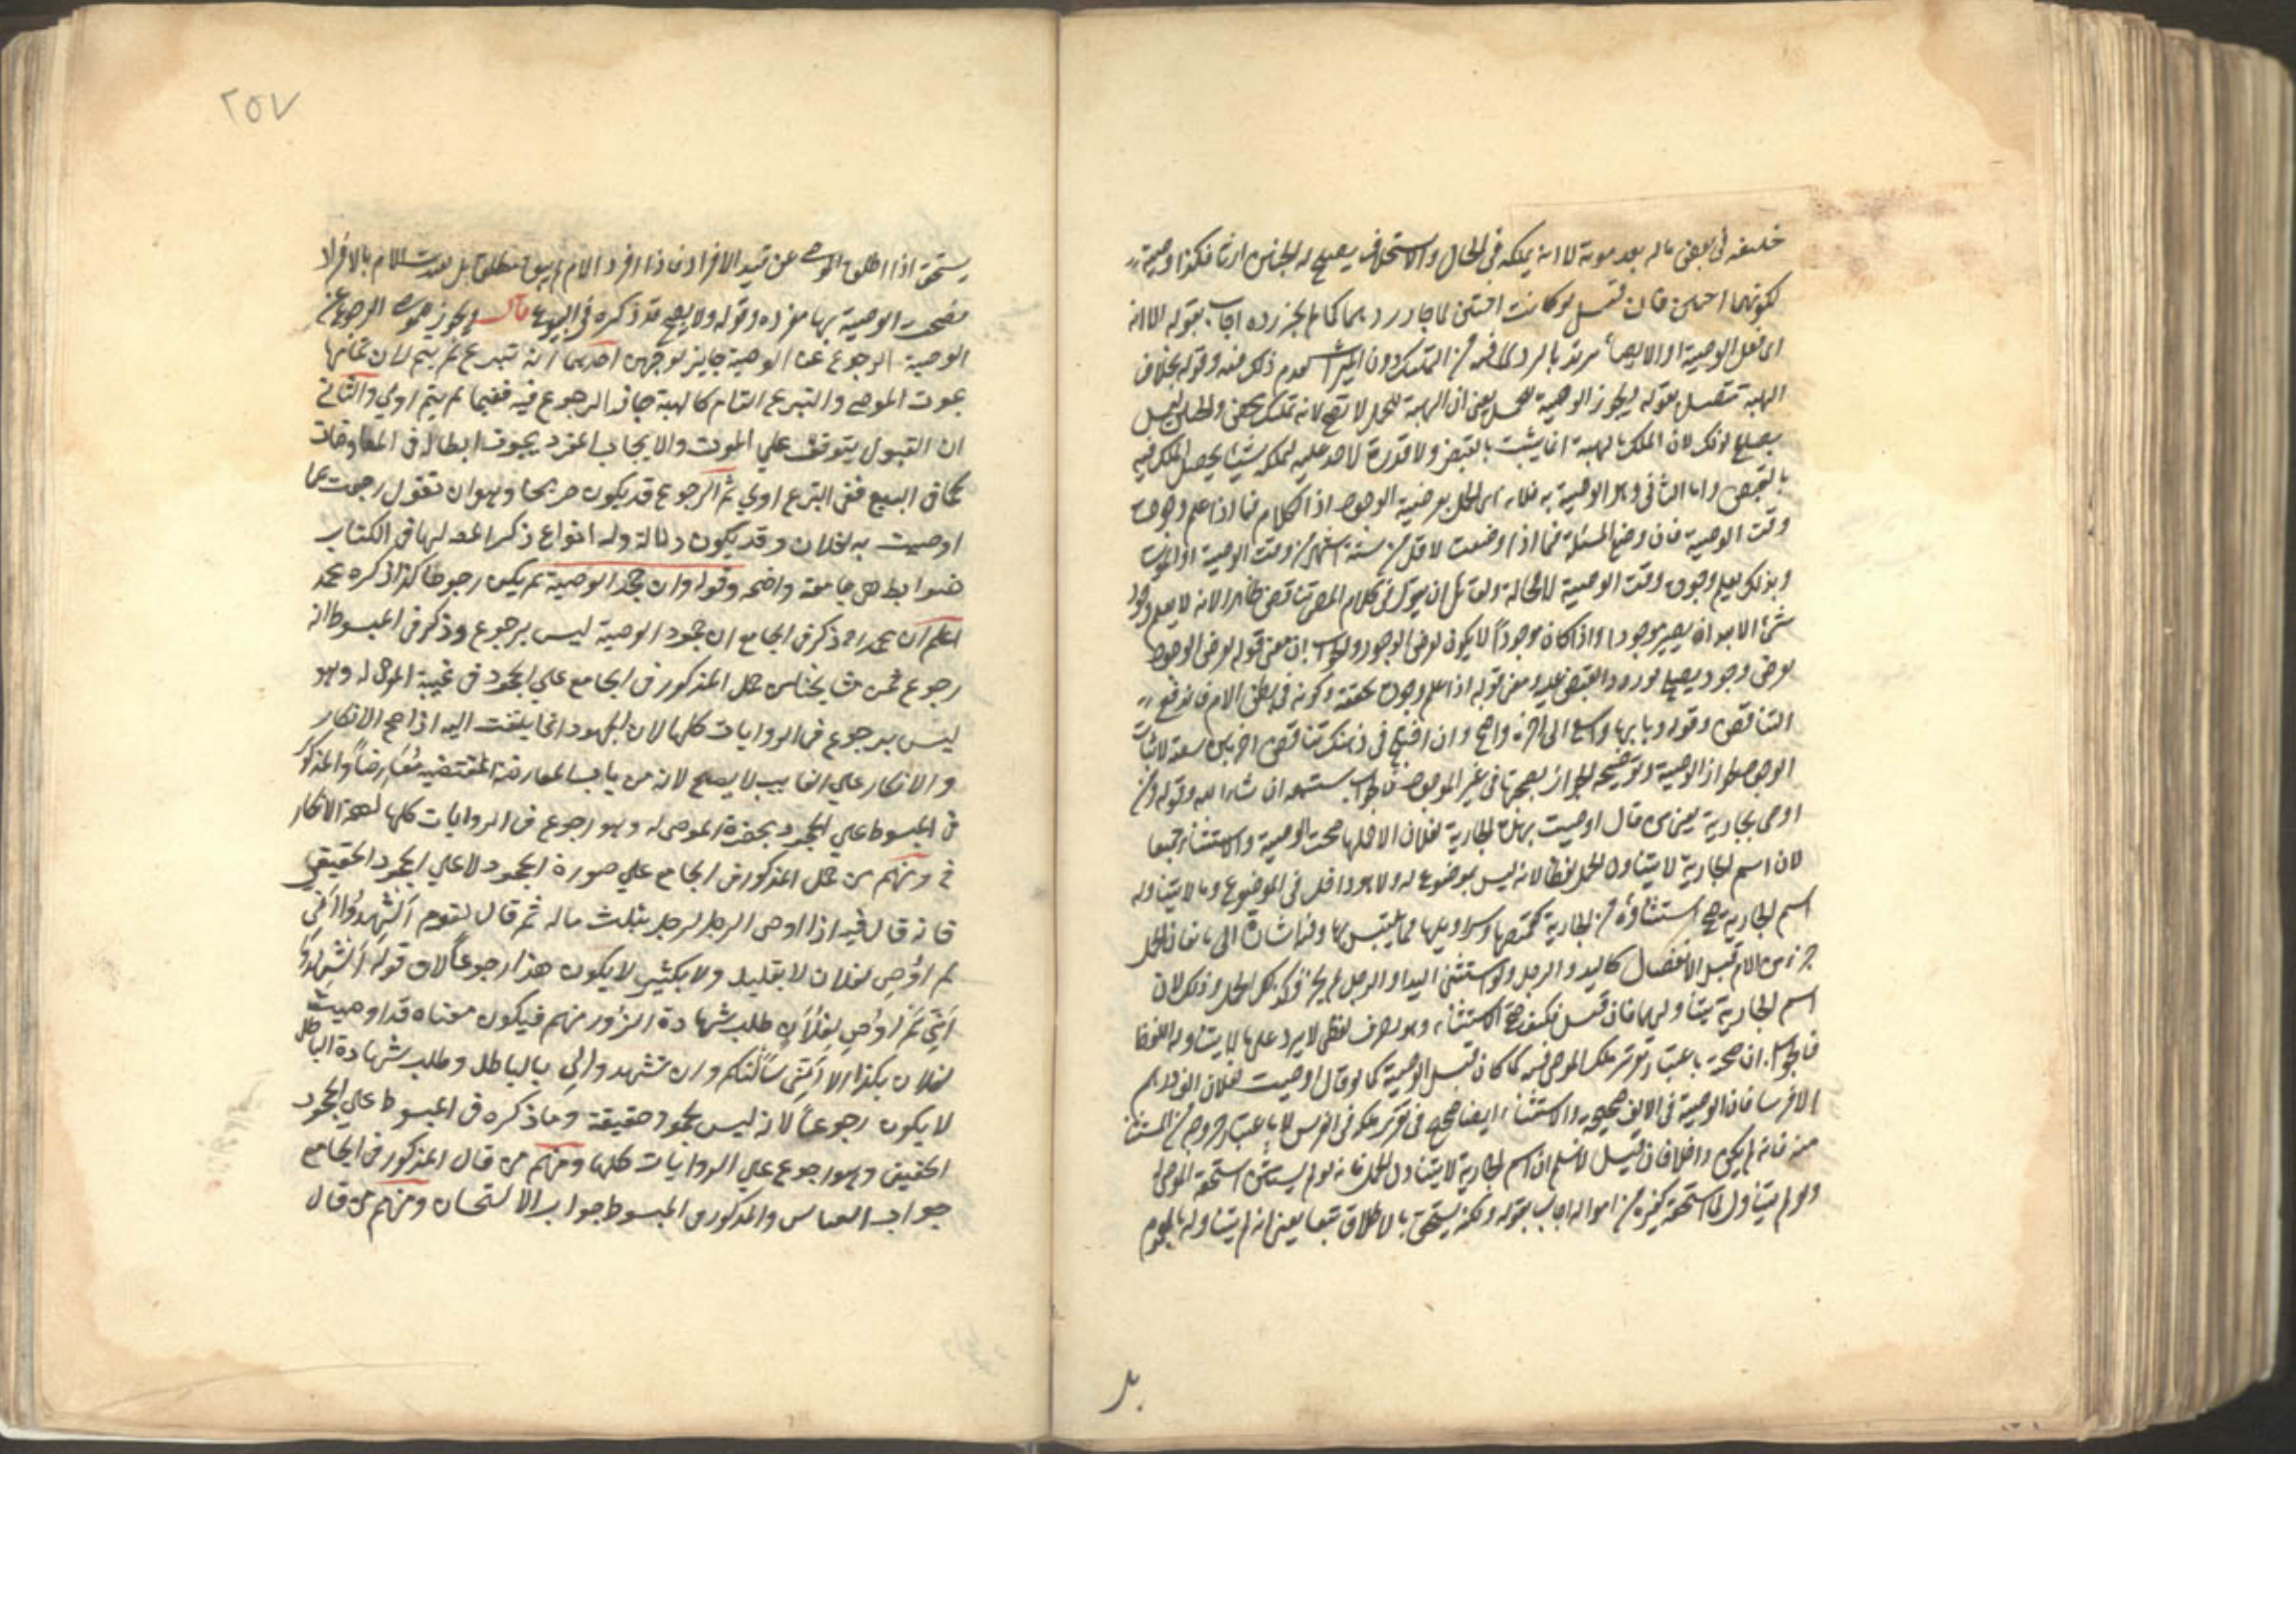 خليفه في بعض ماله بعد موته لا انه يملكه في الحال والاستخلاف يصح له الجنين ارثا فكذا وصية
لكونهما اختين فان قيل لو كانت اختين لما جاز ردهما كما لم يجز رده اجاب بقوله الا انه
اي نفل الوصية او الايصاء يرتد بالرد لما فيه من التمليك دون الميراث لعدم ذلك فيه وقوله بخلاف
الهبة تتصل بقوله ويجوز الوصية للحمل يعني ان الهبة للحمل لا تصح لانه تمليك محض والجنين ليس
بصالح لذلك لان الملك بالهبة انما يثبت بالقبض ولا قدرة لاحد عليه ليملكه شيئا يحصل الملك فيه
بالقبض واما الثاني وهو الوصية به فلانه اي الحمل بعرضية الوجود اذ الكلام فيما اذا علم وجوده
وقت الوصية فان وضع المسئلة فيما اذا وضعت لاقل من ستة اشهر من وقت الوصية او الموت
وبذلك يعلم وجوده وقت الوصية لا محالة ولقائل ان يقول في كلام المص تناقض ظاهر لانه لا يعلم وجود
شئ الا بعد ان يصير موجودا واذا كان موجوداً لا يكون بعرض الوجود والجواب ان معنى قوله بعرض الوجود
بعرض وجود يصلح لورود القبض عليه ومعنى قوله اذا علم وجوده تحققه وكونه في بطن الام فاندفع
التناقض وقوله وبابها واسع الى آخره واضح وان اختلج في ذهنك تناقض اخر بان سعة لاثبات
الوجود اذ الوصية وتوضيحه الجواز بصحتها في غير الموجود فالجواب ستسمعه ان شاء الله وقوله ومن
اوصى بجارية يعني من قال اوصيت بهذه الجارية لفلان الا حملها صحت الوصية والاستثناء جميعا
لان اسم الجارية لا يتناول الحمل لفظا لانه ليس بموضوع له ولا هو داخل في الموضوع وما لا يتناوله
اسم الجارية صح استثناؤه من الجارية كقميصها وسراويلها مما يلتبس بها وفيه اشارة الى ما قال الحمل
جزء من الام قبل الانفصال كاليد والرجل ولو استثنى اليد او الرجل لم يجز فكذلك الحمل وذلك لان
اسم الجارية يتناولهما فان قيل فكيف صح الاستثناء وهو تصرف لفظي لا يرد على ما لا يتناوله اللفظ
فالجواب ان صحته باعتبار تقرير ملك الموصي فيه كما كان قبل الوصية كما لو قال اوصيت لفلان الف درهم
الا فرسا فان الوصية في الالف صحيحة والاستثناء ايضا صحيح في تقرير ملكه في الفرس لا باعتبار خروجه من المستثنى
منه فانه لم يكن داخلا فان قيل لا نسلم ان اسم الجارية لا يتناول الحمل فانه لو لم يستثن استحقه الموصى له
ولو لم يتناول لما استحقه كغيره من امواله اجاب بقوله ولكنه يستحق بالاطلاق تبعا يعني انه لم يتناوله بالعموم
بل
٢٥٧
يستحق اذا اطلق الوصية عن قيد الافراد فاذا افرد الام لم يبق مطلقا بل قيدت الام بالافراد
فصحت الوصية بها مفرده وقوله ولا يصح قد ذكره في البيوع قال ويجوز للموصي الرجوع عن
الوصية الرجوع عن الوصية جايز لوجهين احدهما انه تبرع لم يتم لان تمامها
بموت الموصي والتبرع التام كالهبة جاز الرجوع فيه ففيما لم يتم اولي والثاني
ان القبول يتوقف علي الموت والايجاب المفرد يجوز ابطاله في المعاوضات
كما في البيع ففي التبرع اولي ثم الرجوع قد يكون صريحا وهو ان تقول رجعت عما
اوصيت به لفلان وقد يكون دلالة وله انواع ذكر المص لها في الكتاب
ضوابط هي جامعة واضحه وقوله وان جحد الوصية لم يكن رجوعا كذا ذكره محمد
اعلم ان محمدا رح ذكر في الجامع ان جحود الوصية ليس برجوع وذكر في المبسوط انه
رجوع فمن مشايخنا من حمل المذكور في الجامع علي الجحود في غيبة الموصى له وهو
ليس برجوع في الروايات كلها لان الجحود انما يلتفت اليه اذا صح الانكار
والانكار علي الغايب لا يصح لانه من باب المعارضة المقتضيه مُعَارِضاً والمذكور
في المبسوط علي الجحود بحضرة الموصى له وهو رجوع في الروايات كلها لصحة الانكار
ح ومنهم من حمل المذكور في الجامع علي صورة الجحود لا علي الجحود الحقيقي
فانه قال فيه اذا اوصى الرجل لرجل بثلث ماله ثم قال لقوم اَشْهِدُوا اَنّي
لم اوُصِ لفلان لا بقليل ولا بكثير لا يكون هذا رجوعاً لان قوله اَشْهِدُوا
اَنّي لَمْ اُوصِ لِفُلاَنٍ طلب شهادة الزور منهم فيكون معناه قد اوصيت
لفلان بكذا الا اَنِّي سَألتُكم ان تشهدوا لِي بالباطل وطلب شهادة الباطل
لا يكون رجوعاً لانه ليس بجحود حقيقة وما ذكره في المبسوط علي الجحود
الحقيقي وهو رجوع علي الروايات كلها ومنهم من قال المذكور في الجامع
جواب القياس والمذكور في المبسوط جواب الاستحسان ومنهم من قال